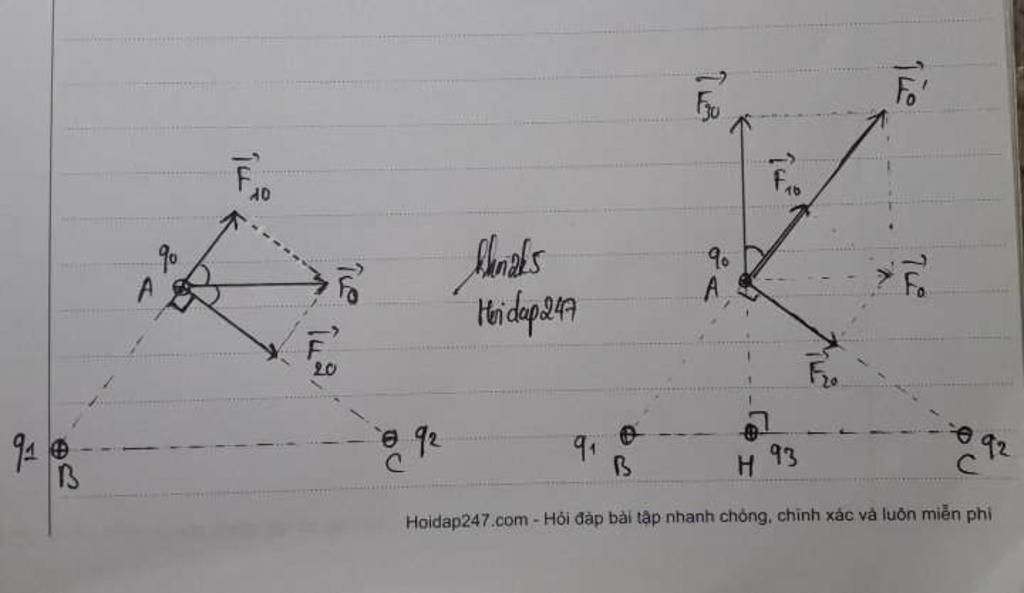 F₁₀
q₀
A
F₀
F₂₀
q₁
B
C
q₂
Hoidap247
F₃₀
F₀'
F₁₀
q₀
A
F₀
F₂₀
q₁
B
H
q₃
C
q₂
Hoidap247.com - Hỏi đáp bài tập nhanh chóng, chính xác và luôn miễn phí